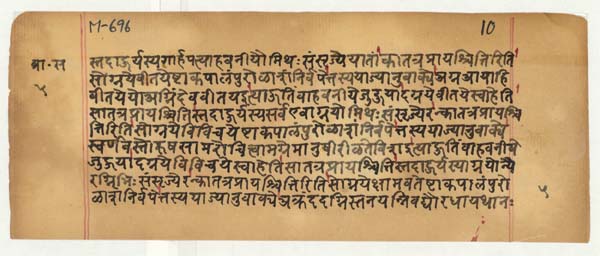 M-696
10
ब्रा॰ स
५
स्तदाहुर्यस्यगार्हपत्याहवनीयौमिथः संसृज्येयातांकातत्रप्रायश्चित्तिरिति
सोग्नयेवीतयेष्टाकपालंपुरोळाशंनिर्वपेत्तस्ययाज्यानुवाक्येअग्नआयाहि
वीतयेयोअग्निंदेववीतयइत्याहुतिंवाहवनीयेजुहुयादग्नयेवीतयेस्वाहेति
सातत्रप्रायश्चित्तिस्तदाहुर्यस्यसर्वएवाग्नयोमिथः संसृज्येरन्कातत्रप्रायश्चि
त्तिरितिसोग्नयेविविचयेष्टाकपालंपुरोळाशंनिर्वपेत्तस्ययाज्यानुवाक्ये
स्वर्णवस्तोरुषसामरोचित्वामग्नेमानुषीरीळतेविशइत्याहुतिंवाहवनीये
जुहुयादग्नयेविविचयेस्वाहेतिसातत्रप्रायश्चित्तिस्तदाहुर्यस्याग्नयोन्यै
रग्निभिः संसृज्येरन्कातत्रप्रायश्चित्तिरितिसोग्नयेक्षामवतेष्टाकपालंपुरो
ळाशंनिर्वपेत्तस्ययाज्यानुवाक्येअक्रंददग्निस्तनयन्निवद्यौरधायथानः
५